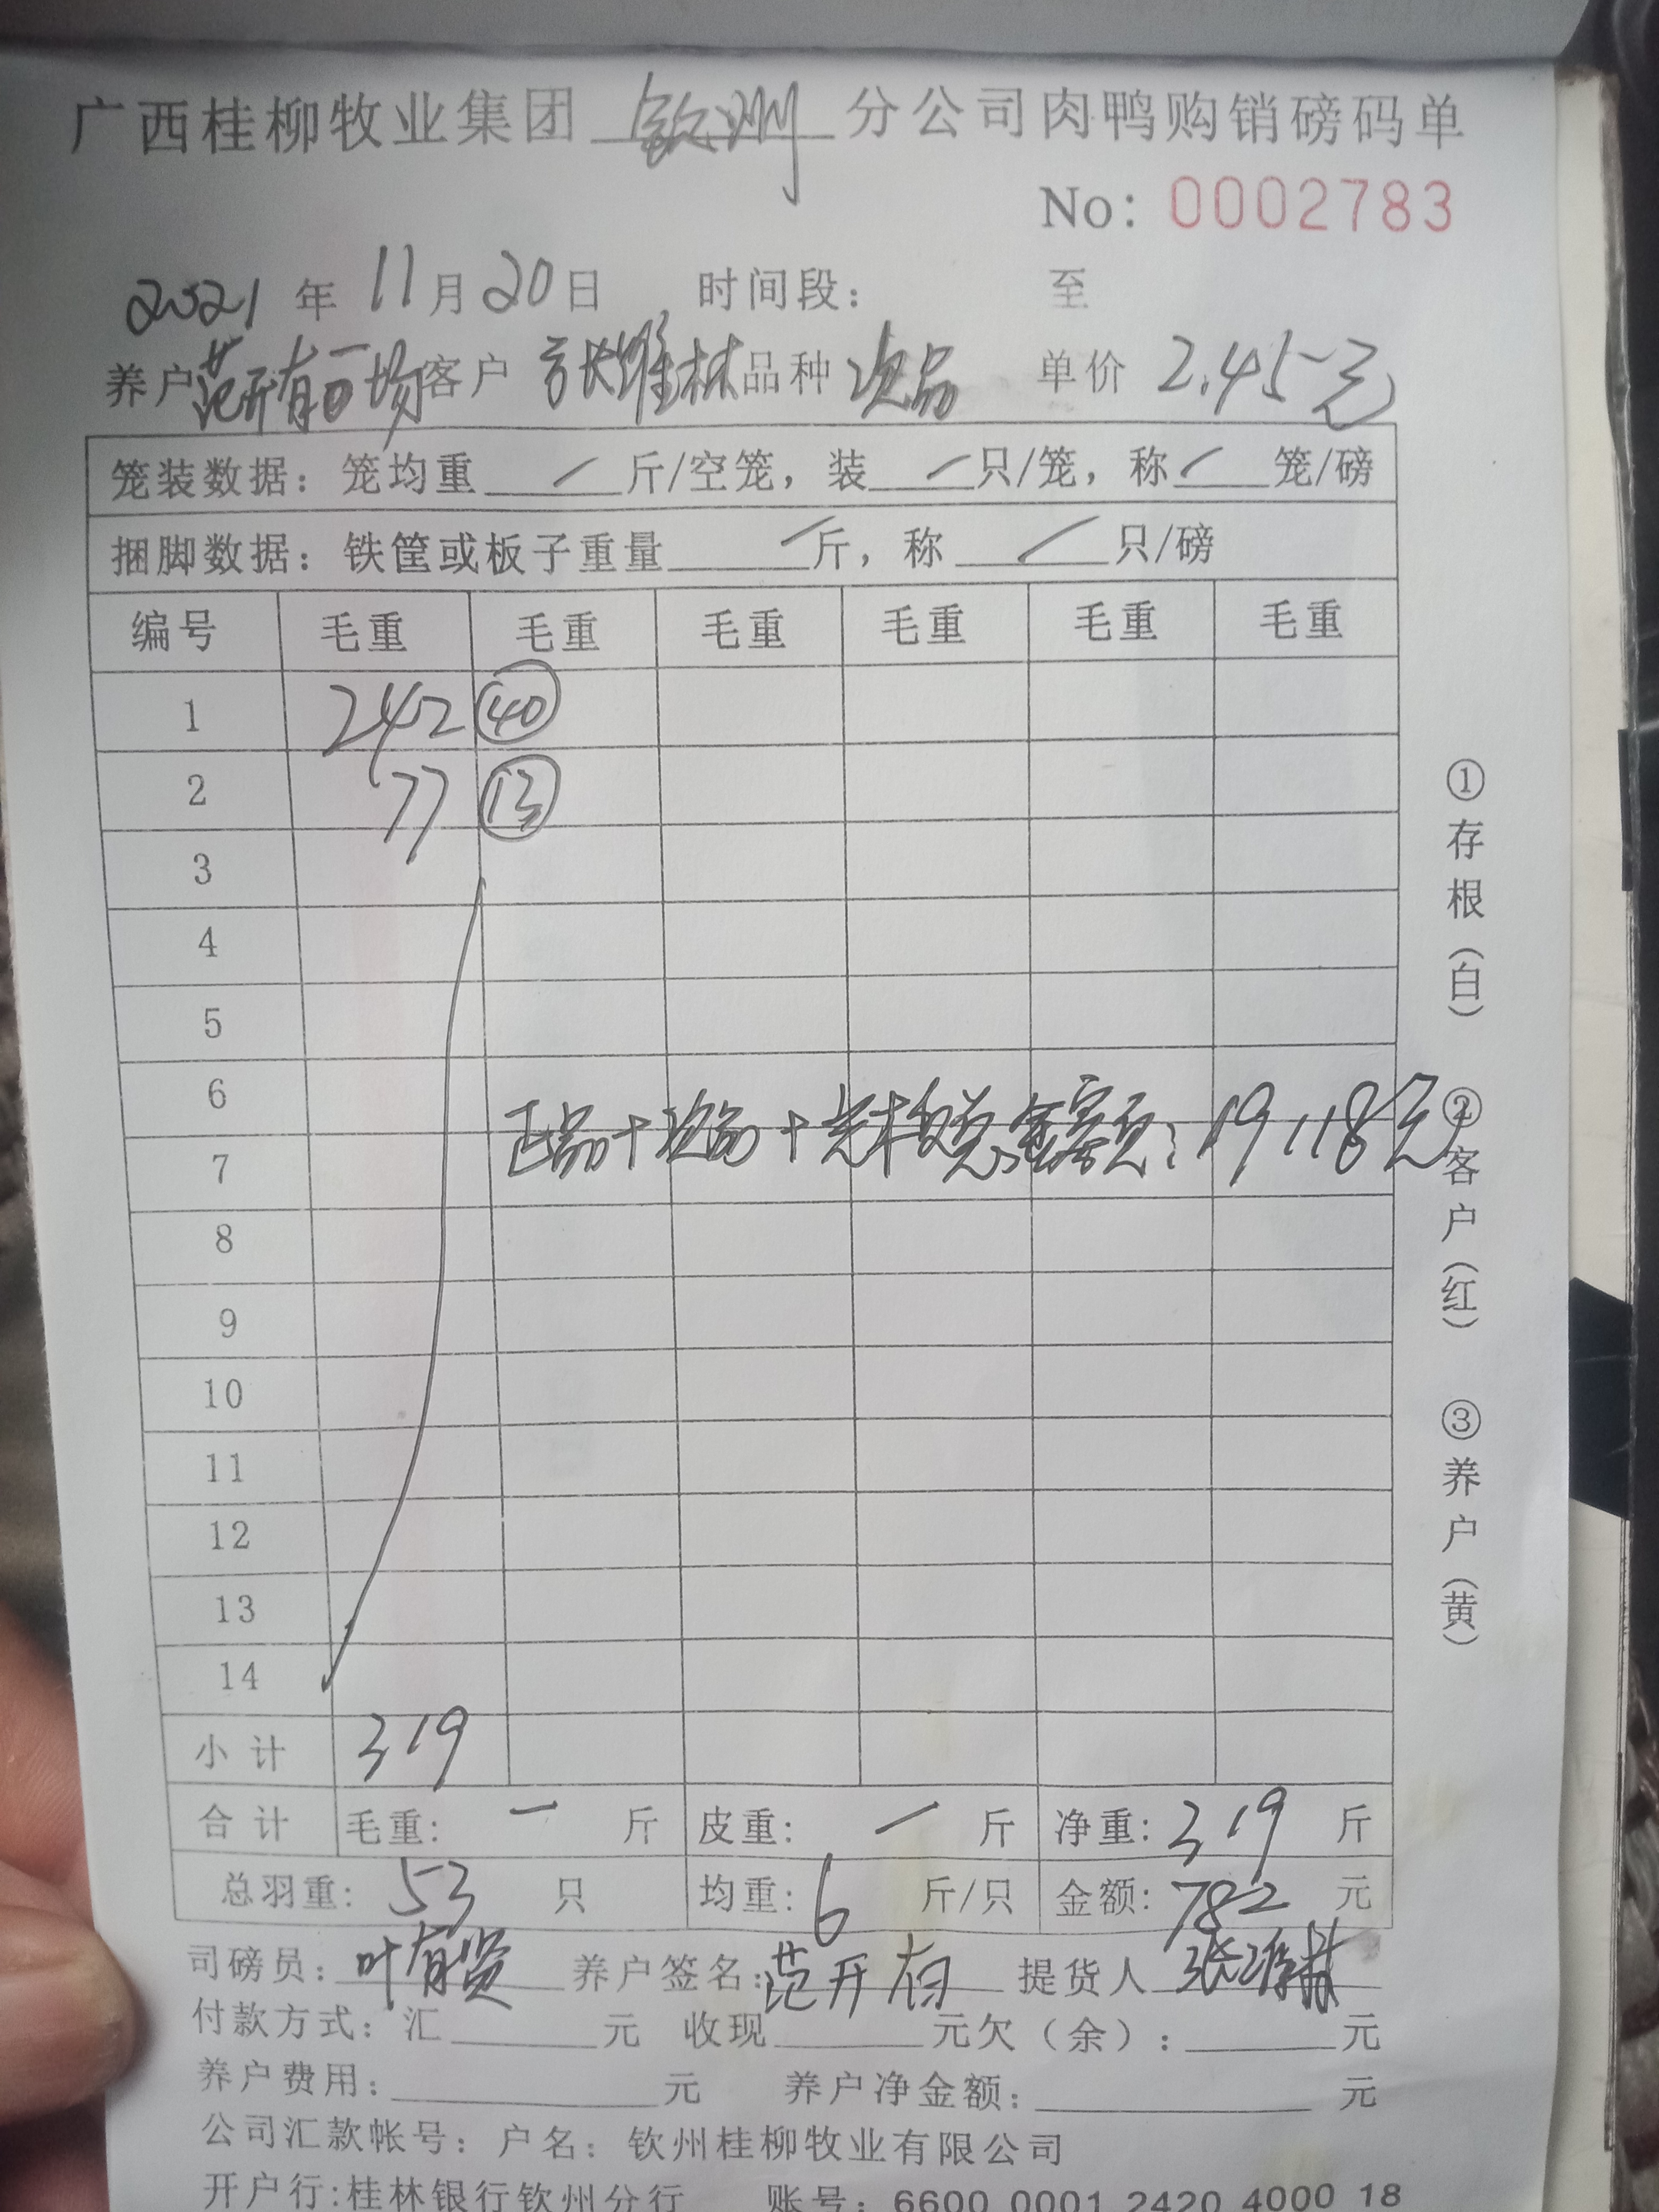 广西桂柳牧业集团 钦州 分公司肉鸭购销磅码单
No: 0002783
2021 年 11 月 20 日 时间段: 至
养户 范开有 场 客户 张维林 品种 次品 单价 2.45元
笼装数据: 笼均重 / 斤/空笼, 装 / 只/笼, 称 / 笼/磅
捆脚数据: 铁筐或板子重量 / 斤, 称 / 只/磅
编号 毛重 毛重 毛重 毛重 毛重 毛重
1 242 40
2 77 13
3
4
5
6
正品+次品+ 总金额: 19118元
7
8
9
10
11
12
13
14
小计 319
合计 毛重: — 斤 皮重: — 斤 净重: 319 斤
总羽重: 53 只 均重: 6 斤/只 金额: 782 元
司磅员: 叶有贤 养户签名: 范开有 提货人 张维林
付款方式: 汇 元 收现 元 欠(余): 元
养户费用: 元 养户净金额: 元
公司汇款帐号: 户名: 钦州桂柳牧业有限公司
开户行:桂林银行钦州分行 账号: 6600 0001 2420 4000 18
①存根(白) ②客户(红) ③养户(黄)